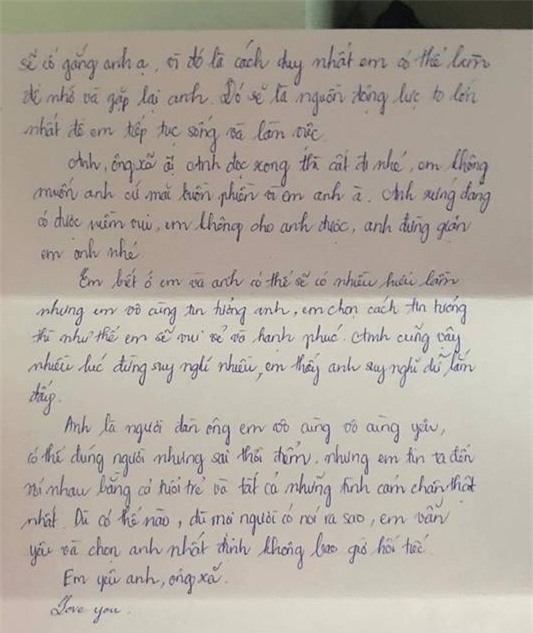 sẽ cố gắng anh ạ, vì đó là cách duy nhất em có thể làm
để nhớ và gặp lại anh. Đó sẽ là nguồn động lực to lớn
nhất để em tiếp tục sống và làm việc.
Anh, ông xã ơi Anh đọc xong thì cất đi nhé, em không
muốn anh cứ mãi buồn phiền vì em anh à. Anh xứng đáng
có được niềm vui, em không cho anh được, anh đừng giận
em anh nhé
Em biết ở em và anh có thể sẽ có nhiều hiểu lầm
nhưng em vô cùng tin tưởng anh, em chọn cách tin tưởng
thì như thế em sẽ vui vẻ và hạnh phúc. Anh cũng vậy
nhiều lúc đừng suy nghĩ nhiều, em thấy anh suy nghĩ dữ lắm
đấy.
Anh là người đàn ông em vô cùng vô cùng yêu,
có thể đúng người nhưng sai thời điểm. nhưng em tin ta đến
với nhau bằng cả tuổi trẻ và tất cả những tình cảm chân thật
nhất. Dù có thế nào, dù mọi người có nói ra sao, em vẫn
yêu và chọn anh nhất định không bao giờ hối tiếc.
Em yêu anh, ông xã.
Love you.